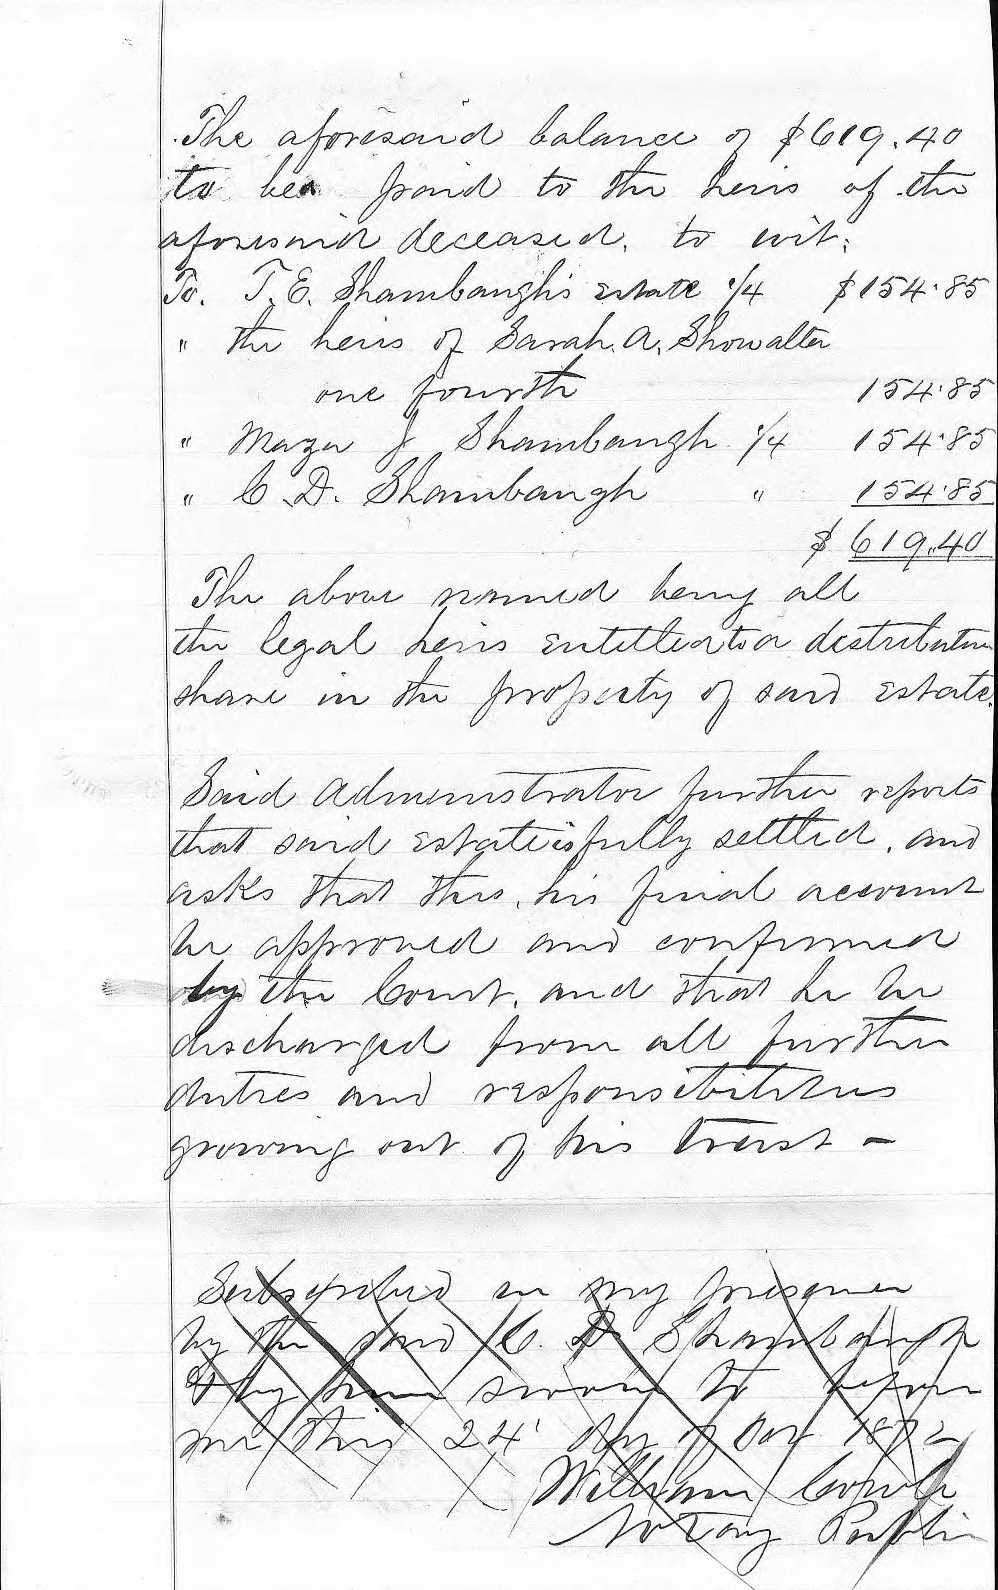 The aforesaid balance of $619.40
to be paid to the heirs of the
aforesaid deceased, to wit:
To. T. E. Shambaugh's estate 1/4 $154.85
" the heirs of Sarah. A. Showalter
one fourth 154.85
" J Shambaugh 1/4 154.85
" C. D. Shambaugh " 154.85
$ 619.40
The above named being all
the legal heirs entitled to a distributive
share in the property of said estate.
Said Administrator further reports
that said estate is fully settled, and
asks that this, his final account
be approved and confirmed
by the Court, and that he be
discharged from all further
duties and responsibilities
growing out of his trust –
Subscribed in my presence
by the said C. D. Shambaugh
& by him sworn to before
me this 24' day of 187
William
Notary Public